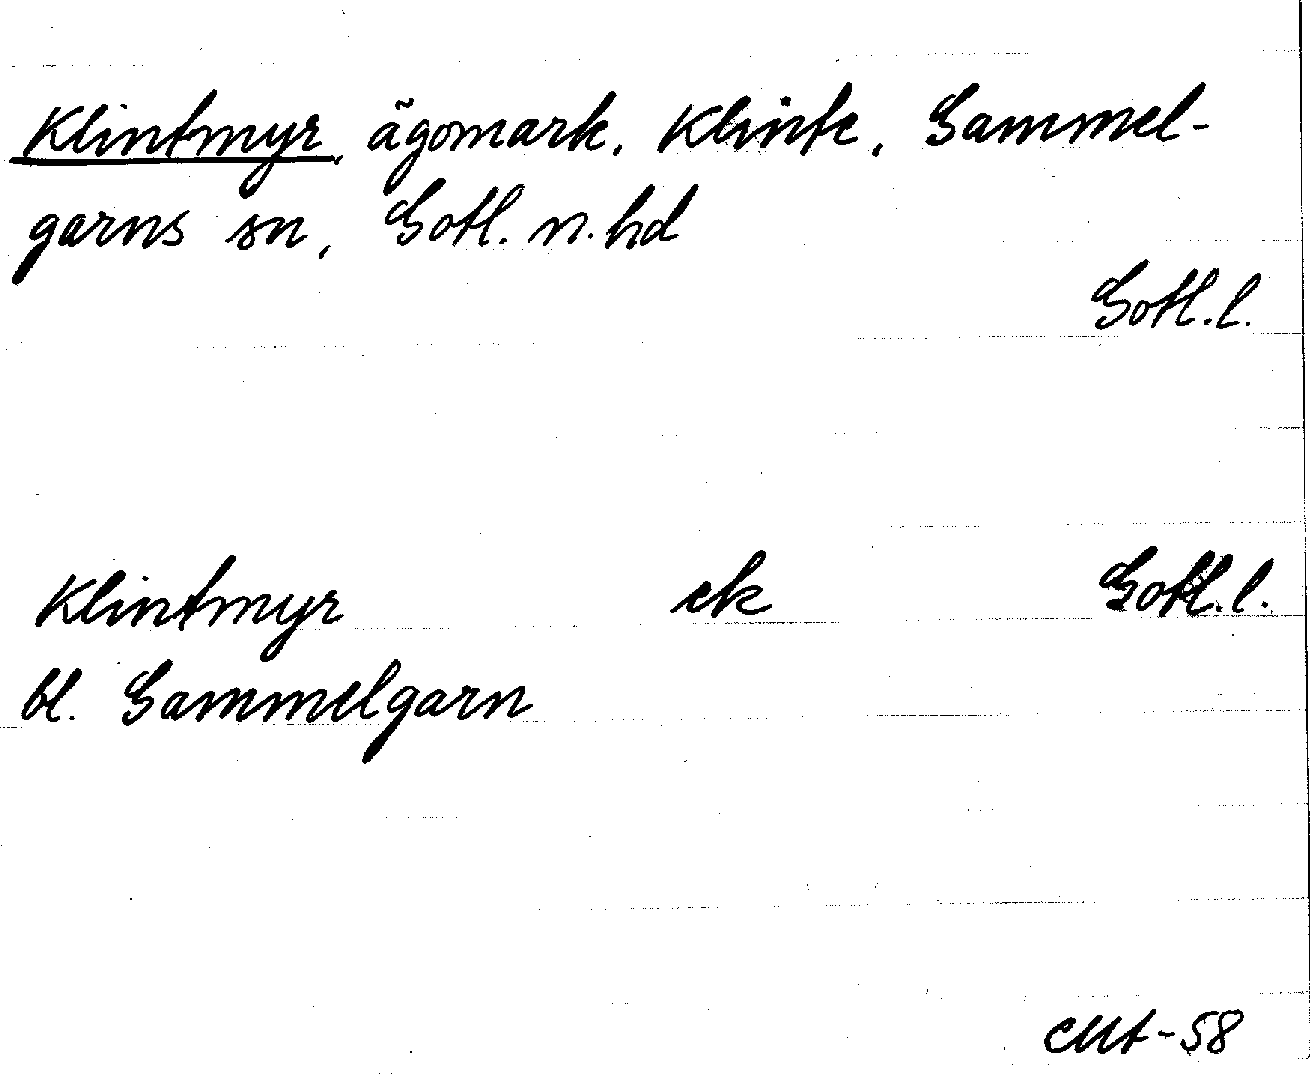 Klintmyr, ägomark, Klinte, Gammel-
garns sn, Gotl. n. hd
Gotl. l.
Klintmyr ek Gotl. l.
bl. Gammelgarn